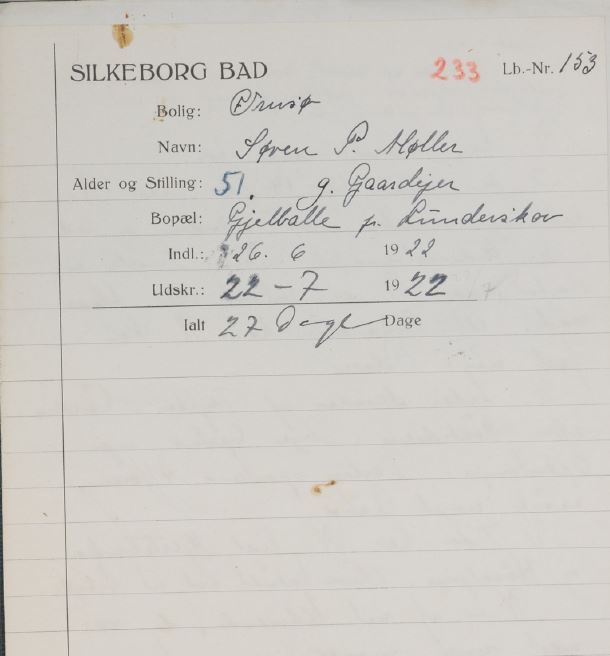 SILKEBORG BAD 233 Lb.-Nr. 153
Bolig: Ørnsø
Navn: Søren P. Møller
Alder og Stilling: 51. g. Gaardejer
Bopæl: Gjelballe p. Lunderskov
Indl.: 26. 6 1922
Udskr.: 22-7 1922
Ialt 27 Dage Dage